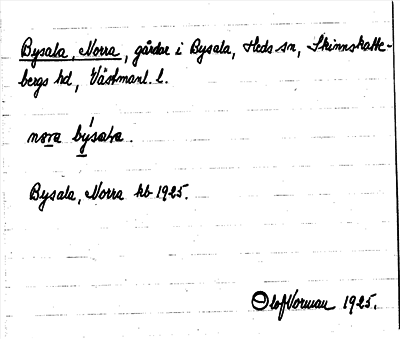 Bysala, Norra, gårdar i Bysala, Heds sn, Skinnskatte-
bergs hd, Västmanl. l.
nora býsala.
Bysala, Norra kb 1925.
Olof Vorman 1925.